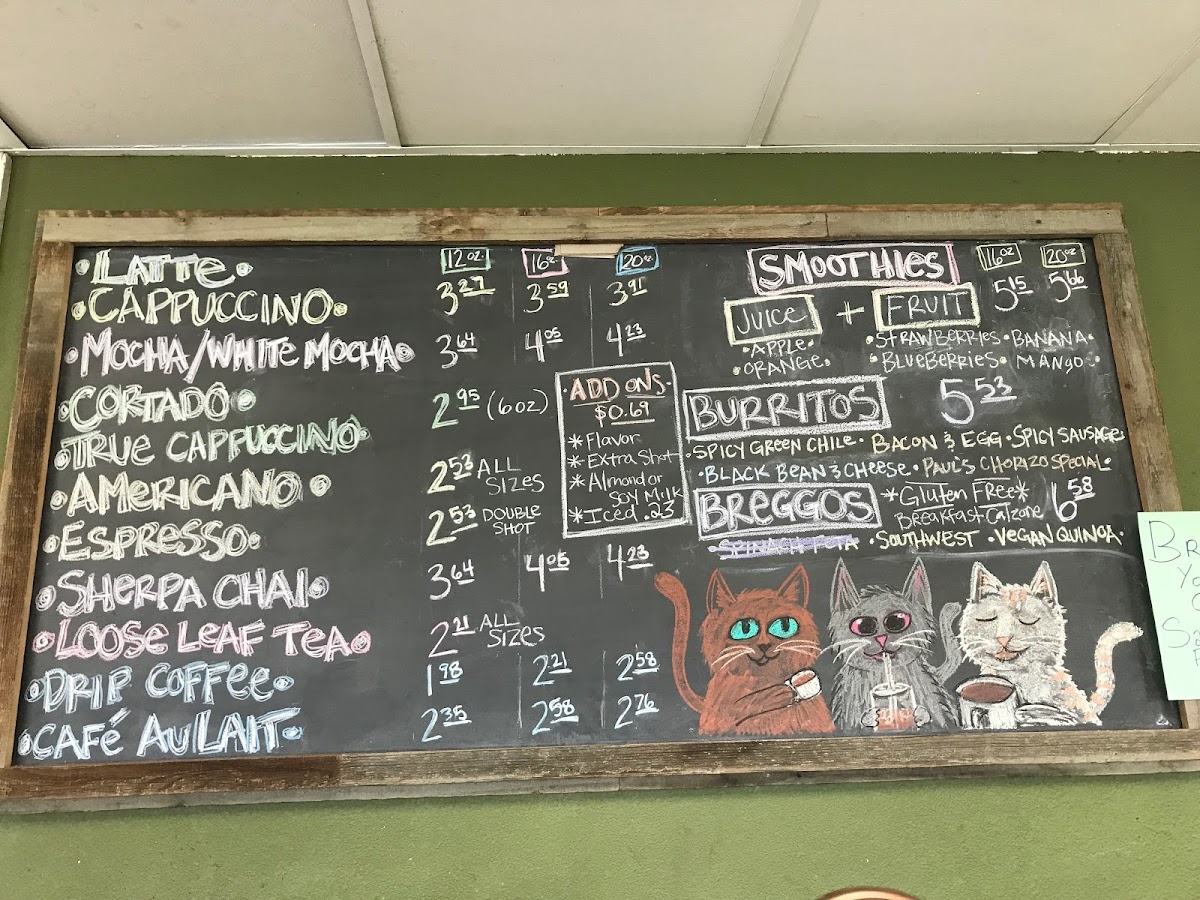 12 oz. 16 oz. 20 oz.
LATTE
CAPPUCCINO 3.27 3.59 3.91
MOCHA/WHITE MOCHA 3.64 4.05 4.23
CORTADO 2.95 (6oz)
TRUE CAPPUCCINO
AMERICANO 2.53 ALL SIZES
ESPRESSO 2.53 DOUBLE SHOT
SHERPA CHAI 3.64 4.05 4.23
LOOSE LEAF TEA 2.21 ALL SIZES
DRIP COFFEE 1.98 2.21 2.58
CAFÉ AU LAIT 2.35 2.58 2.76
ADD ONS
$0.69
*Flavor
*Extra Shot
*Almond or
Soy Milk
*Iced .23
SMOOTHIES 16oz 20oz
5.15 5.66
JUICE + FRUIT
•APPLE• •STRAWBERRIES •BANANA•
•ORANGE• •BLUEBERRIES• MANGO•
BURRITOS 5.53
•SPICY GREEN CHILE• BACON & EGG •SPICY SAUSAGE
•BLACK BEAN & CHEESE •PAUL'S CHORIZO SPECIAL•
BREGGOS *Gluten Free* 6.58
Breakfast Calzone
•SPINACH FETA •SOUTHWEST •VEGAN QUINOA•